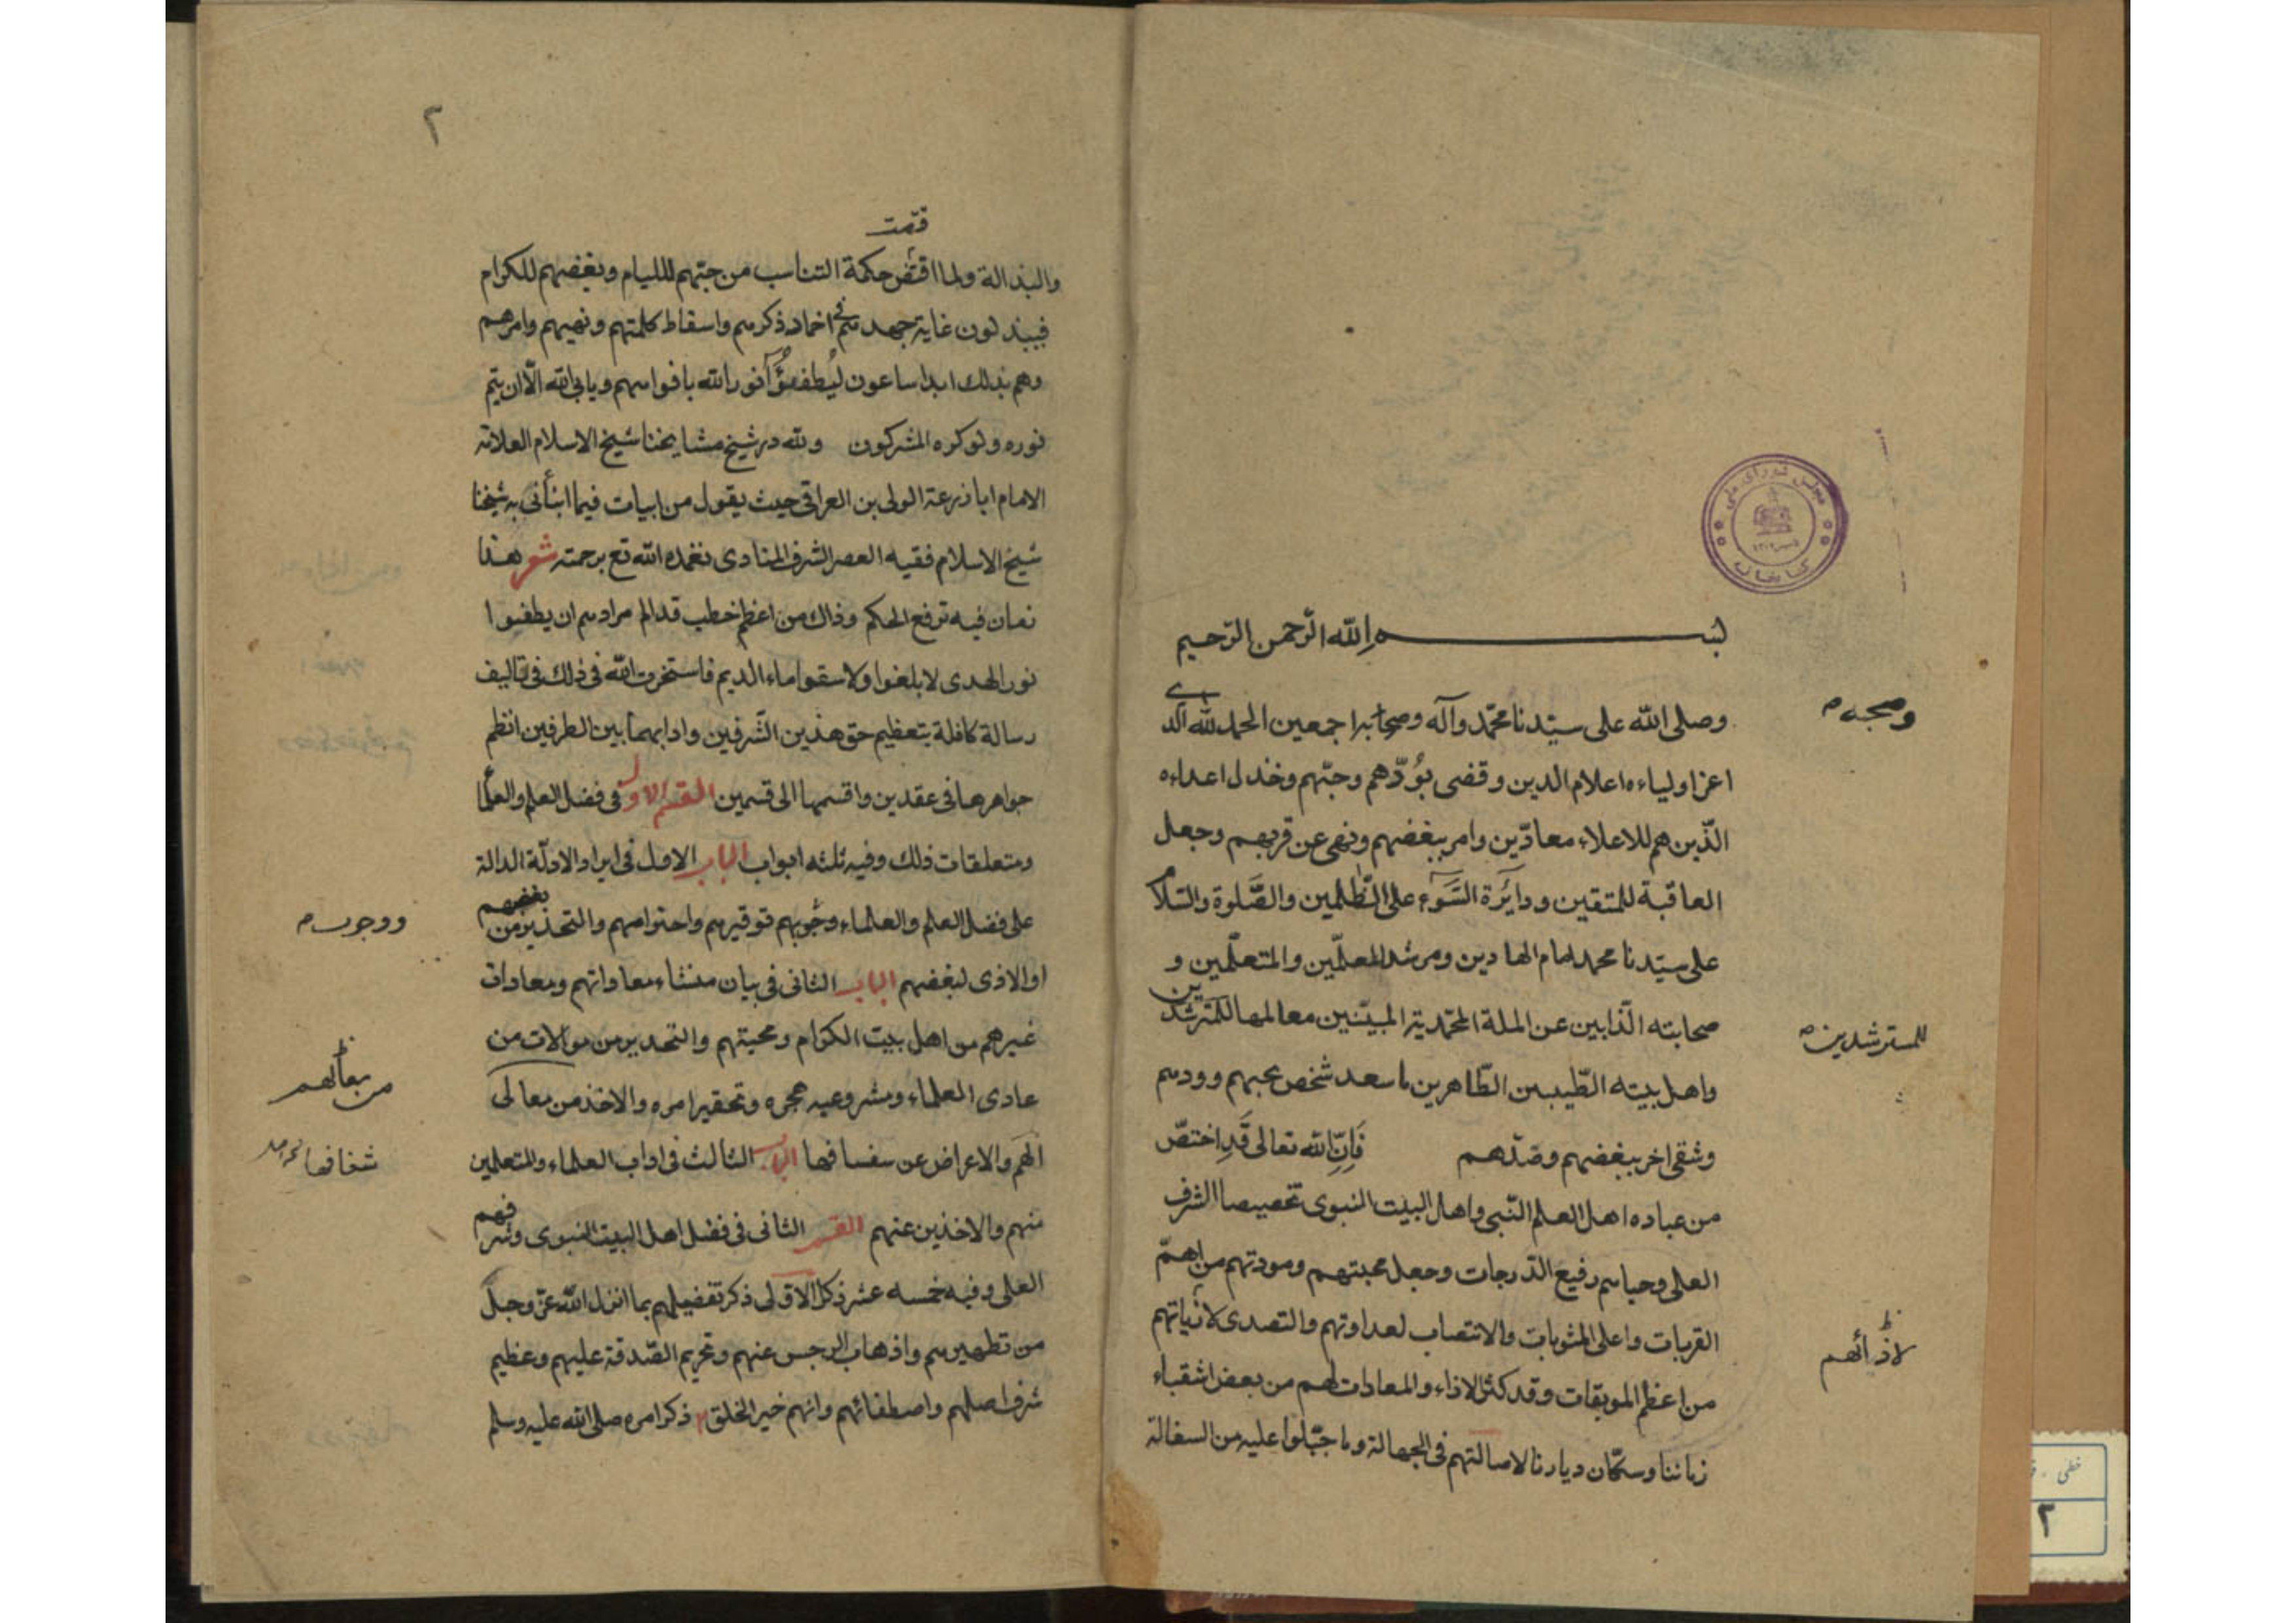 بسم الله الرحمن الرحيم
وصلى الله على سيّدنا محمّد وآله وصحابه اجمعين الحمد لله الذى
وصحبه
اعز اولياءه اعلام الدين وقضى بوُدّهم وحبّهم وخذل اعداءه
الّذين هم للاعلاء معادّين وامر ببغضهم ونهى عن قربهم وجعل
العاقبة للمتقين ودايَرة السَّوء على الظّلمين والصَّلوة والسّلام
على سيّدنا محمد امام الهادين ومرشد المعلّمين والمتعلّمين و
صحابته الّذابين عن الملة المحمّدية المبيّنين معالمها للمترشدين
للمسترشدين
واهل بيته الطّيبين الطّاهرين ما سعد شخص بحبهم وودهم
وشقى اخر ببغضهم وصدّهم فَاِنّ الله تعالى قَدِ اختصّ
من عباده اهل العلم النّبى واهل البيت النبوى تخصيصا الشرف
العلى وحباهم رفيع الدّرجات وجعل محبتهم ومودتهم من اهمّ
القربات واعلى المثوبات والانتصاب لعداوتهم والتصدى لاذياتهم
لاذائهم
من اعظم الموبقات وقد كثر الاذاء والمعادات لهم من بعض اشقياء
زماننا وسكّان ديارنا لاصالتهم فى الجهالة وما جبّلوا عليه من السفالة
٢
قضت
والبذالة ولما اقتض حكمة التناسب من حبّهم لللئيام وبغضهم للكرام
فيبذلون غاية جهدهم فى اخماد ذكرهم واسقاط كلمتهم ونهيهم وامرهم
وهم بذلك ابدا ساعون ليُطفئُوا نور الله بافواههم ويابى الله الّا ان يتم
نوره ولو كره المشركون ولله در شيخ مشايخنا شيخ الاسلام العلامة
الامام ابا زرعة الولى بن العراقى حيث يقول من ابيات فيما انبأنى به شيخنا
شيخ الاسلام فقيه العصر الشرف المنادى تغمده الله تع برحمته شعر هذا
زمان فيه ترفع الحكم وذاك من اعظم خطب قد الم مرادهم ان يطفئوا
نور الهدى لا بلغوا ولا سقوا ماء الديم فاستخرت الله فى ذلك فى تاليف
رسالة كافلة بتعظيم حق هذين الشّرفين وادابهما بين الطرفين انظم
جواهرها فى عقدين واقسمها الى قسمين القسم الاول فى فضل العلم والعلما
ومتعلقات ذلك وفيه ثلثه ابواب الباب الاول فى ايراد الادلّة الدالة
على فضل العلم والعلماء وجوبهم توقيرهم واحترامهم والتحذير من بغضهم
ووجوب
او الاذى لبغضهم الباب الثانى فى بيان منشاء معاداتهم ومعادات
غيرهم من اهل بيت الكرام ومحبتهم والتحذير من موالات من
عادى العلماء ومشروعيه هجره وتحقير امره والاخذ من معالى
الهمم والاعراض عن سفسافها الباب الثالث فى اداب العلماء والمتعلمين
منهم والاخذين عنهم القسم الثانى فى فضل اهل البيت النبوى وشرافهم
العلى وفيه خمسه عشر ذكر الاولى ذكر تفضيلهم بما انزل الله عزّ وجلّ
من تطهيرهم واذهاب الرجس عنهم وتحريم الصّدقة عليهم وعظيم
شرف اصلهم واصطفائهم وانهم خير الخلق ٢ ذكر امره صلى الله عليه وسلم